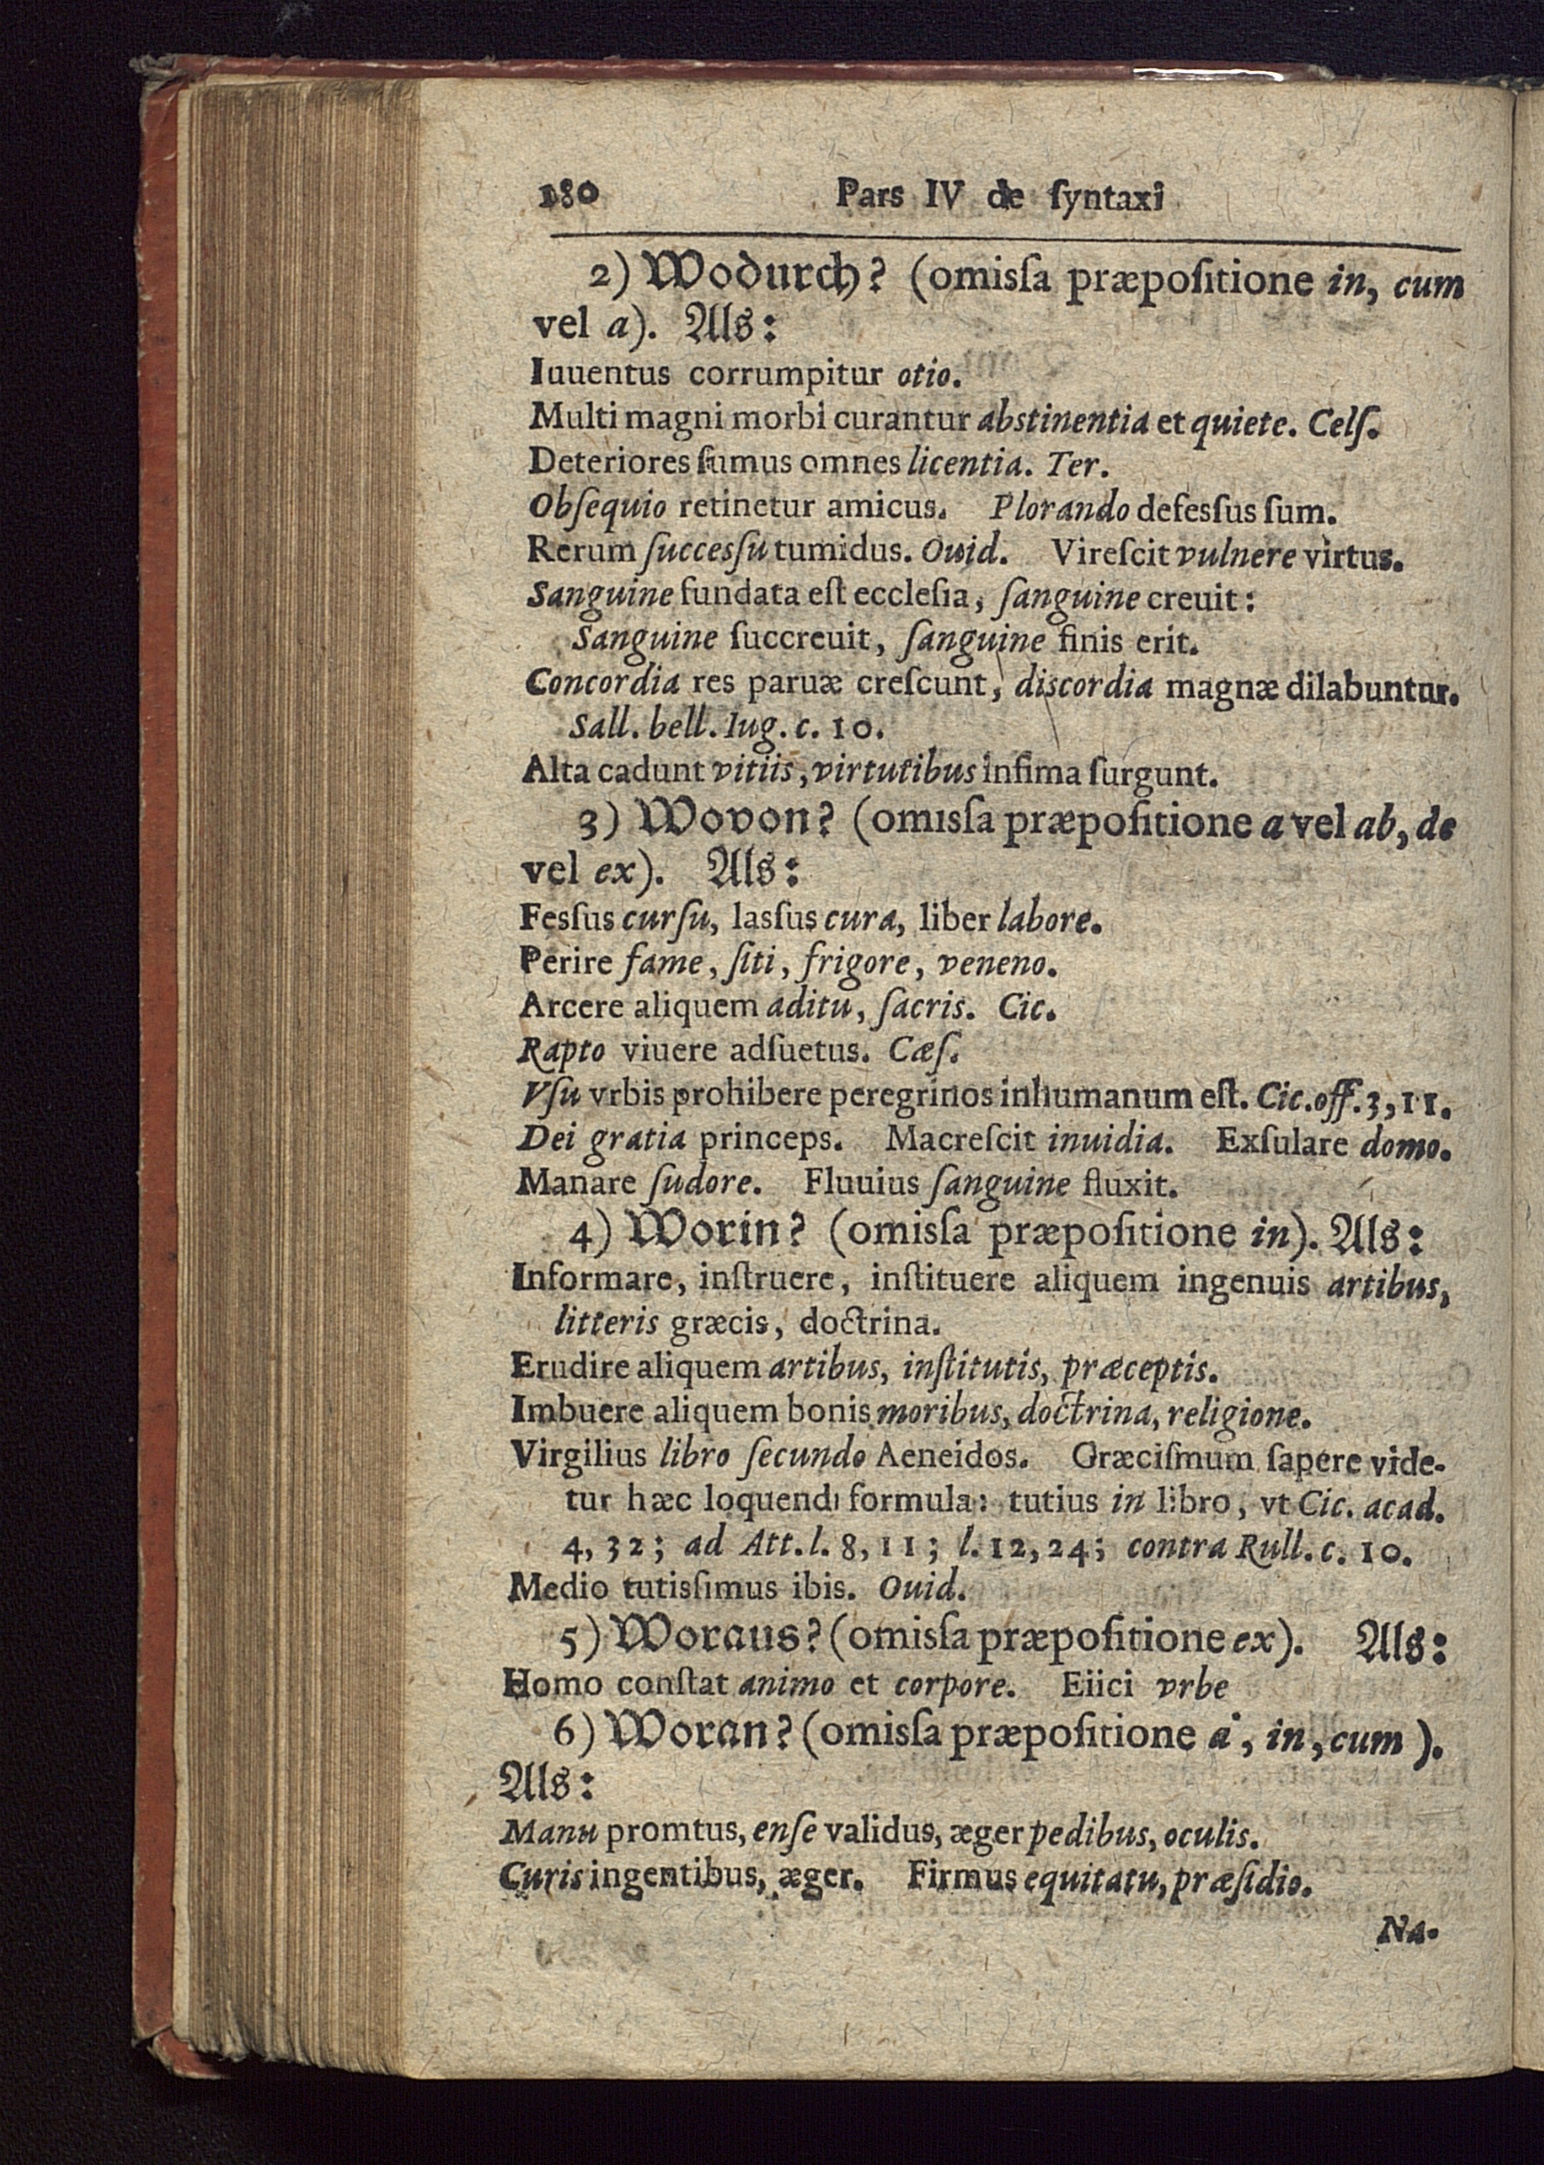 180 Pars IV de ſyntaxi
2) Wodurch? (omisſa præpoſitione in, cum
vel a). Als:
Iuuentus corrumpitur otio.
Multi magni morbi curantur abstinentia et quiete. Celſ.
Deteriores ſumus omnes licentia. Ter.
Obſequio retinetur amicus. Plorando defesſus ſum.
Rerum ſuccesſu tumidus. Ouid. Vireſcit vulnere virtus.
Sanguine fundata eſt eccleſia, ſanguine creuit:
Sanguine ſuccreuit, ſanguine finis erit.
Concordia res paruæ creſcunt, discordia magnæ dilabuntur.
Sall. bell. Iug. c. 10.
Alta cadunt vitiis, virtutibus infima ſurgunt.
3) Wovon? (omisſa præpoſitione a vel ab, de
vel ex). Als:
Fesſus curſu, lasſus cura, liber labore.
Perire fame, ſiti, frigore, veneno.
Arcere aliquem aditu, ſacris. Cic.
Rapto viuere adſuetus. Cæſ.
Vſu vrbis prohibere peregrinos inhumanum eſt. Cic. off. 3, 11.
Dei gratia princeps. Macreſcit inuidia. Exſulare domo.
Manare ſudore. Fluuius ſanguine fluxit.
4) Worin? (omisſa præpoſitione in). Als:
Informare, inſtruere, inſtituere aliquem ingenuis artibus,
litteris græcis, doctrina.
Erudire aliquem artibus, inſtitutis, præceptis.
Imbuere aliquem bonis moribus, doctrina, religione.
Virgilius libro ſecundo Aeneidos. Græciſmum ſapere vide-
tur hæc loquendi formula: tutius in libro, vt Cic. acad.
4, 32; ad Att. l. 8, 11; l. 12, 24; contra Rull. c. 10.
Medio tutisſimus ibis. Ouid.
5) Woraus? (omisſa præpoſitione ex). Als:
Homo conſtat animo et corpore. Eiici vrbe
6) Woran? (omisſa præpoſitione a, in, cum).
Als:
Manu promtus, enſe validus, æger pedibus, oculis.
Curis ingentibus, æger. Firmus equitatu, præſidio.
Na-